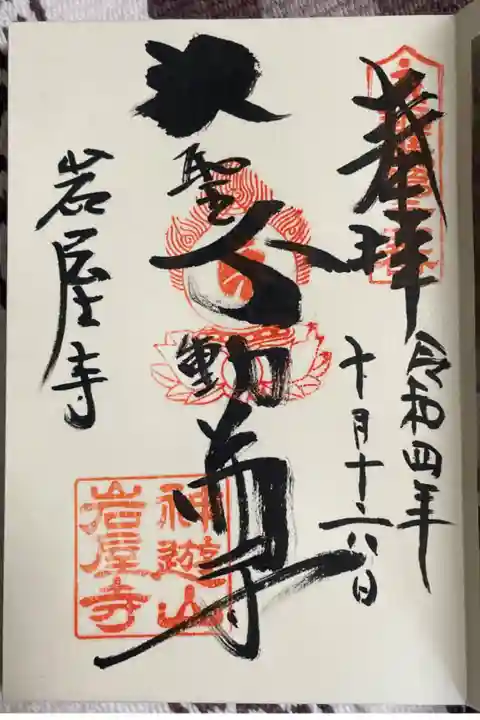 奉拝
令和四年
十月十六日
大聖不動尊
岩屋寺
神遊山
岩屋寺